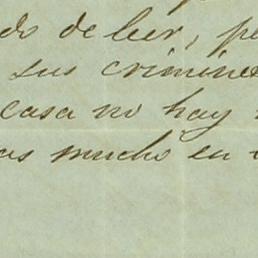 do de leer, pe
sus crimines
casa no hay
as mucho en